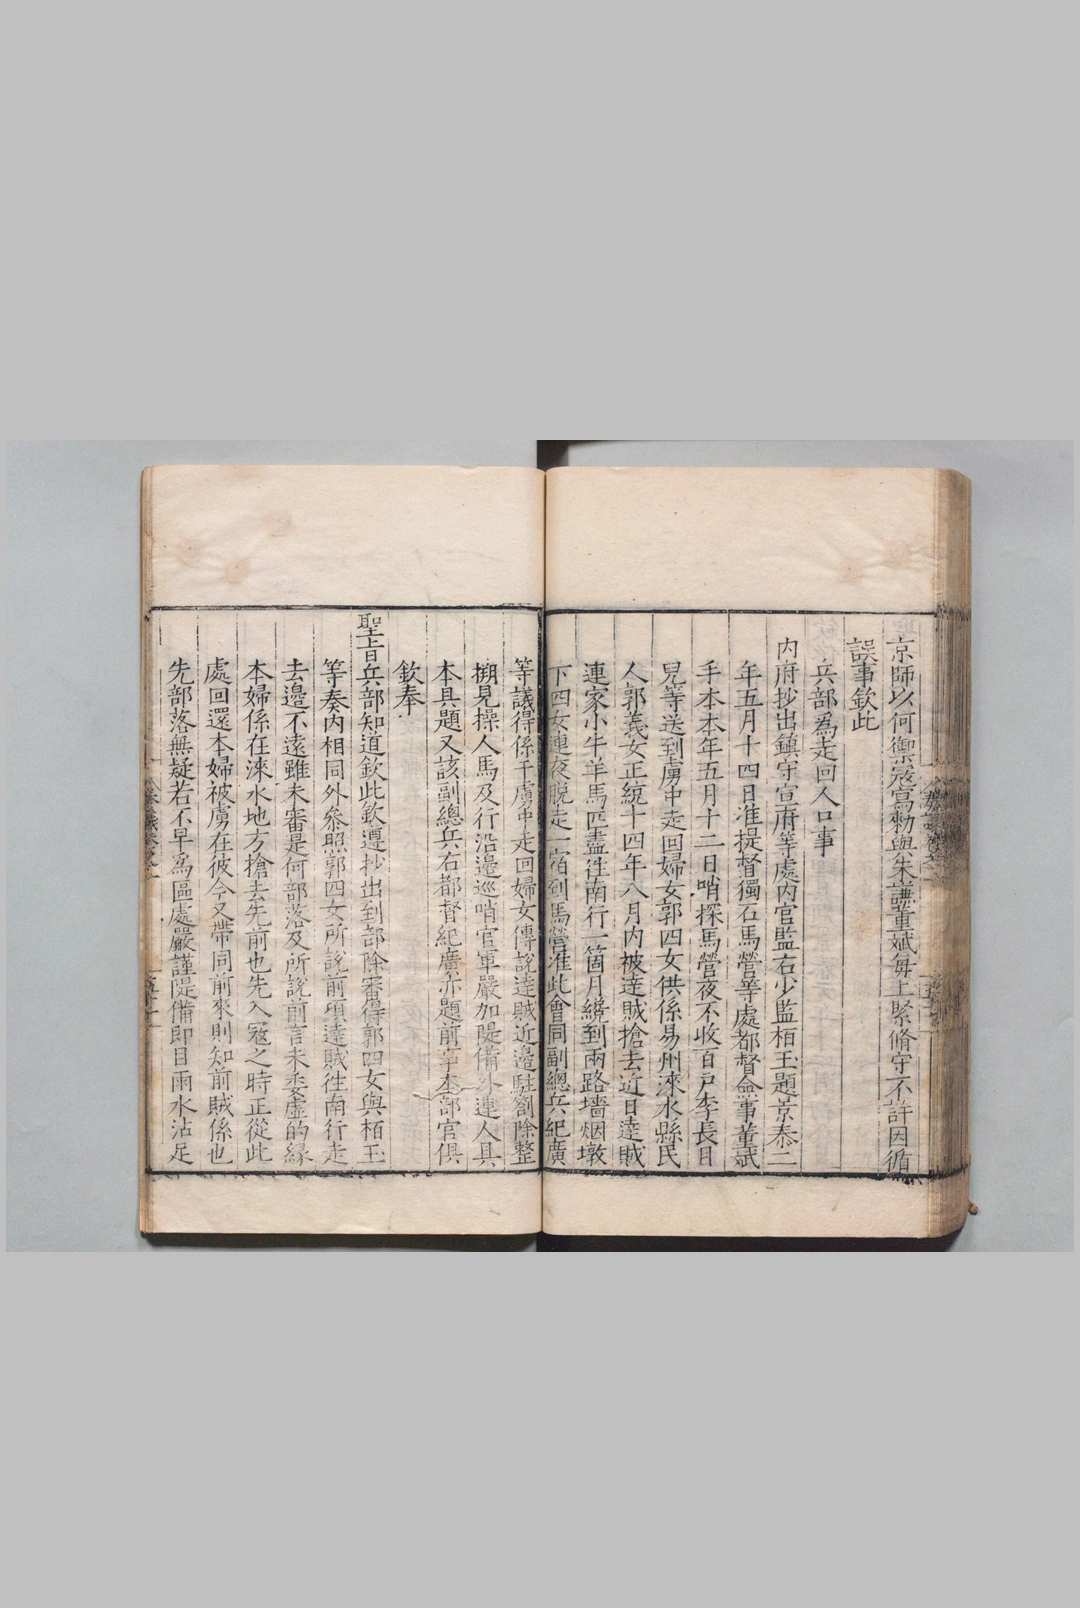 京師以何禦寇寫勅與朱謙董斌每上緊脩守不許因循
誤事欽此
兵部為走回人口事
內府抄出鎮守宣府等處內官監右少監栢玉題景泰二
年五月十四日准提督獨石馬營等處都督僉事董斌
手本本年五月十二日哨探馬營夜不收百戶李長目
兒等送到虜中走回婦女郭四女供係易州淶水縣民
人郭義女正統十四年八月內被達賊搶去近日達賊
連家小牛羊馬匹盡徃南行一箇月纔到兩路墻烟墩
下四女連夜脫走一宿到馬營准此會同副總兵紀廣
等議得係干虜中走回婦女傳說達賊近邊駐劄除整
搠見操人馬及行沿邊巡哨官軍嚴加隄備外連人具
本具題又該副總兵右都督紀廣亦題前事本部官俱
欽奉
聖旨兵部知道欽此欽遵抄出到部除審得郭四女與栢玉
等奏內相同外參照郭四女所說前項達賊徃南行走
去邊不遠雖未審是何部落及所說前言未委虛的緣
本婦係在淶水地方搶去先前也先入寇之時正從此
處回還本婦被虜在彼今又帶同前來則知前賊係也
先部落無疑若不早為區處嚴謹隄備即目雨水沾足